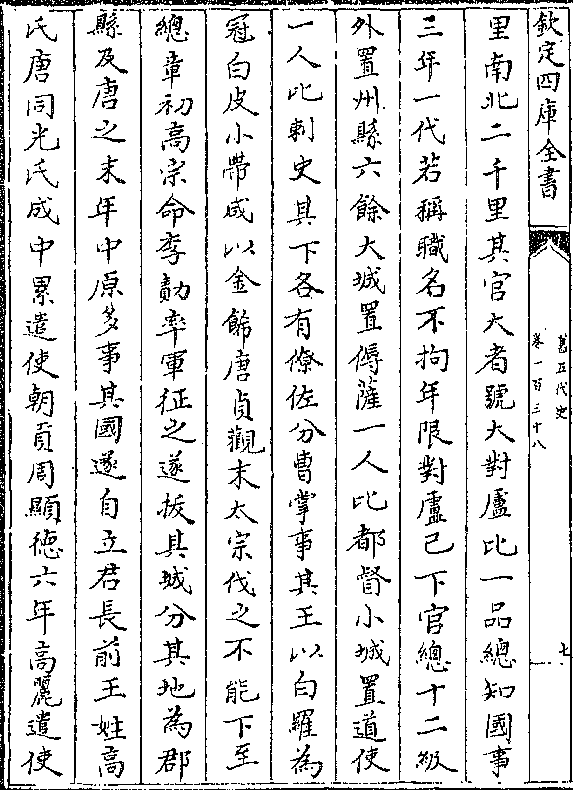 欽定四庫全書
舊五代史
卷一百三十八
七
里南北二千里其官大者號大對盧比一品總知國事
三年一代若稱職名不拘年限對盧已下官總十二級
外置州縣六餘大城置傉薩一人比都督小城置道使
一人比刺史其下各有僚佐分曹掌事其王以白羅為
冠白皮小帶咸以金飾唐貞觀末太宗伐之不能下至
總章初高宗命李勣率軍征之遂拔其城分其地為郡
縣及唐之末年中原多事其國遂自立君長前王姓高
氏唐同光氏成中累遣使朝貢周顯徳六年高麗遣使